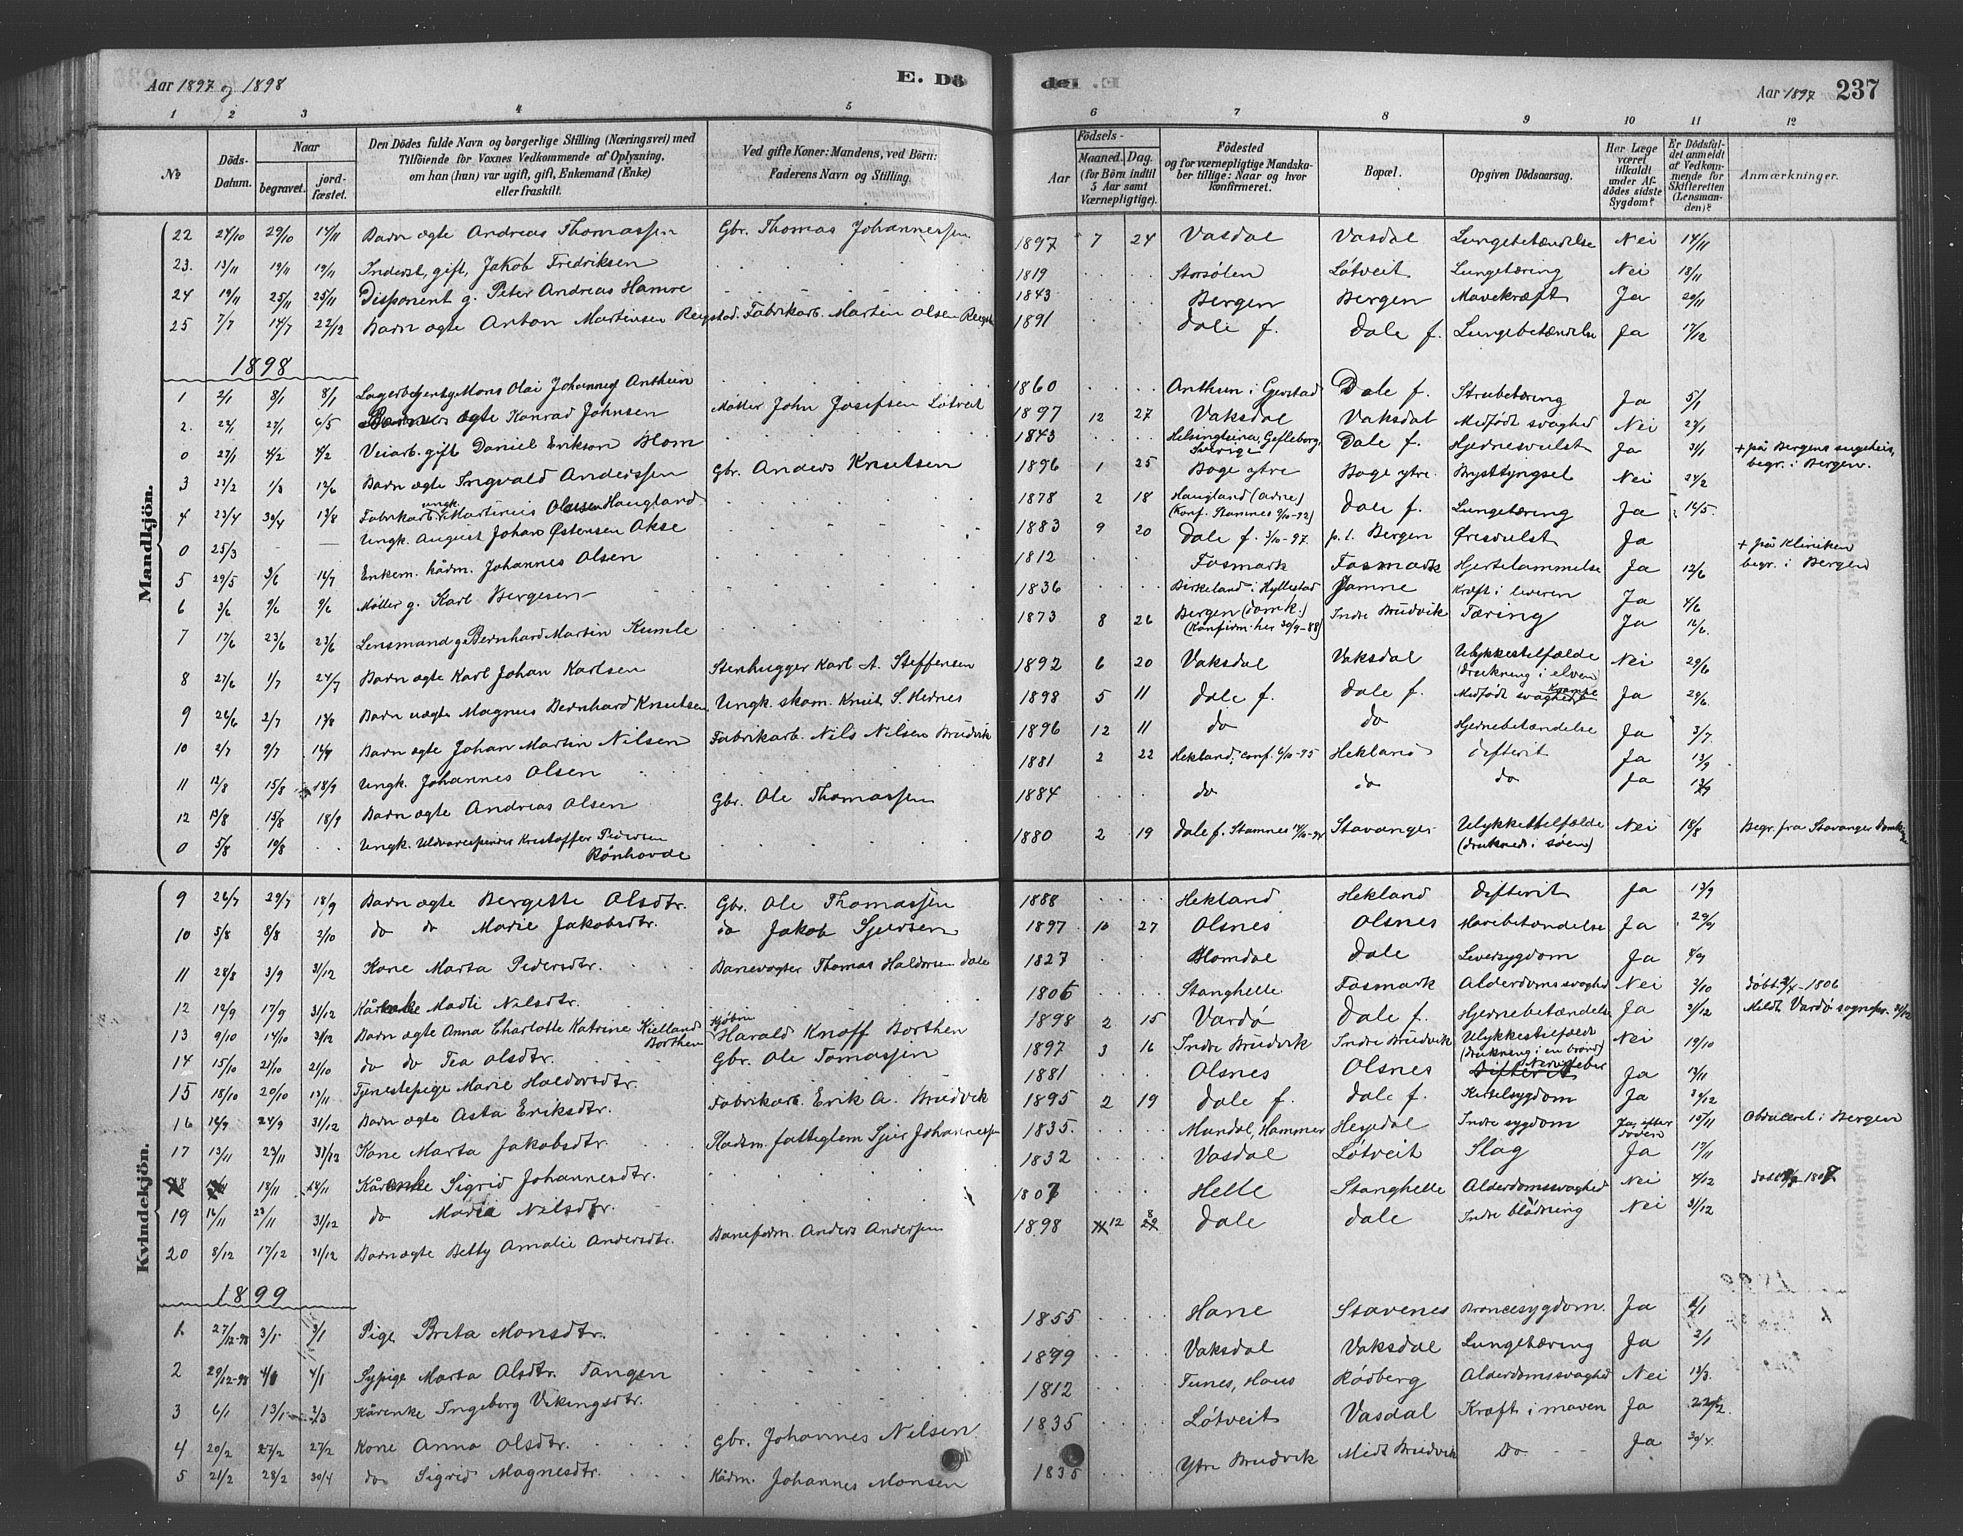 Aar 1897 og 1898
E. Dö
de! E.
Aar 1897
237
1 2 3 4 5 6 7 8 9 10 11 12
No
Döds-Datum.
Naar
begravet.
jordfæstet.
Den Dödes fulde Navn og borgerlige Stilling (Næringsvei) med
Tilföiende for Voxnes Vedkommende af Oplysning,
om han (hun) var ugift, gift, Enkemand (Enke)
eller fraskilt.
Ved gifte Koner: Mandens, ved Börn:
Faderens Navn og Stilling.
Födsels-
Aar
Maaned. Dag.
(for Börn indtil
5 Aar samt
Værnepligtige).
Födested
og for værnepligtige Mandska-
ber tillige: Naar og hvor
konfirmeret.
Bopæl.
Opgiven Dödsaarsag.
Har Læge
været
tilkaldt
under Af-
dödes sidste
Sygdom?
Er Dödsfal-
det anmeldt
af Vedkom-
mende for
Skifteretten
(Lensman-
den)?
Anmærkninger.
Mandkjön.
22 24/10 29/10 14/11 Barn ægte Andreas Thomassen Gbr. Thomas Johannessen 1897 7 24 Vasdal Vasdal Lungebetændelse Nei 14/11
23. 13/11 19/11 19/11 Inderst, gift, Jakob Fredriksen 1819 Storsølen Løtveit Lungetæring Nei 18/11
24 19/11 25/11 25/11 Disponent g. Peter Andreas Hamre 1843 Bergen Bergen Mavekræft Ja 20/11
25 7/7 14/7 22/12 Barn ægte Anton Martinsen Fabrikarb. Martin Olsen 1891 Dale f. Dale f. Lungebetændelse Ja 17/12
1898
1 2/1 8/1 8/1 Mons Olai Johannes Anthun 1860 Anthun i Gjerstad Dale f. Strubetæring Ja 5/1
2. 24/1 27/1 6/5 Barn ægte Konrad Johnsen Møller John Josefsen Løtveit 1897 12 27 Vaksdal Vaksdal Medfødt svaghed Nei 27/1
0 27/1 4/2 4/2 Veiarb. gift Daniel Erikson Blom 1843 Gefleborg, Sverige Dale f. Hjernesvulst Ja 3/1 + på Bergens sygehus,
begr. i Bergen.
3 22/2 1/3 12/6 Barn ægte Ingvald Anderssen Gbr. Anders Knutsen 1896 1 25 Boge ytre Boge ytre Brysttyngsel Nei 24/2
4 23/4 30/4 13/8 Fabrikarb. ungk. Martinus Olssen Haugland 1878 2 18 Haugland (Arne)
(Konf. Stamnes 9/10-92) Dale f. Lungetæring Ja 14/5
0 25/3 — — Ungk. August Johan Østensen Akse 1883 9 20 Dale f. 3/10-97. p.t. Bergen Øresvulst Ja + på Kliniken
begr. i Bergen
5 29/5 3/6 16/7 Enkem. kårm. Johannes Olsen 1812 Fosmark Fosmark Hjertelammelse Ja 12/6
6 3/6 9/6 9/6 Møller g. Karl Bergesen 1836 Birkeland i Hyllestad Jamne Kræft i leveren Ja 4/6
7 17/6 23/6 23/6 Lensmand g. Bernhard Martin Kumle 1873 8 26 Bergen (Domk.)
(Konfirm. her 30/9-88) Indre Brudvik Tæring Ja
8 27/6 1/7 24/7 Barn ægte Karl Johan Karlsen Stenhugger Karl A. Steffensen 1892 6 20 Vaksdal Vaksdal Ulykkestilfælde
(drukning i elven) Nei 29/6
9 26/6 2/7 14/8 Barn uægte Magnus Bernhard Knutsen Ungk. skom. Knut S. Hernes 1898 5 11 Dale f. Dale f. Medfødt svaghed Krampe Ja 29/6.
10 2/7 9/7 Barn ægte Johan Martin Nilsen Fabrikarb. Nils Nilsen Brudvik 1896 12 11 do do Hjernebetændelse Ja 3/7.
11 12/8 15/8 18/9 Ungk. Johannes Olsen 1881 2 22 Hekland, conf. 6/10-95 Hekland difterit Ja 13/9
12 13/8 15/8 18/9 Barn ægte Andreas Olsen Gbr. Ole Thomassen 1884 do do do Ja 13/9
0 5/8 19/8 Ungk. Uldvarespinder Kristoffer Pedersen
Rønhovde 1880 2 19 Dale f. Stamnes Stavanger Ulykkestilfælde
(druknede i søen) Nei 18/8 Begr. fra Stavanger Domk.
Kvindekjön.
9 26/7 29/7 18/9 Barn ægte Bergitte Olsdtr. Gbr. Ole Thomassen 1888 Hekland Hekland Difterit Ja 13/9
10 5/8 8/8 2/10 do do Marie Jakobsdtr. do Jakob Sjursen 1897 10 27 Olsnes Olsnes Mavebetændelse Ja 29/9
11 28/8 3/9 31/12 Kone Marta Pedersdtr. Banevogter Thomas Haldorsen Dale 1827 Blomdal Dale Leversygdom Ja 4/9
12 12/9 17/9 31/12 Kårenke Madli Nilsdtr. 1806 Stanghelle Fosmark Alderdomssvaghed Nei 3/10 Døbt 1806
13 9/10 14/10 31/12 Barn ægte Anna Charlotte Katrine Kielland
Borthen Kjøbm Harald Knoff Borthen 1898 2 15 Vardø Dale f. Hjernebetændelse Ja 31/12 Meldt Vardø sognepr. 31/12
14 15/10 21/10 21/10 do do Tea Olsdtr. Gbr. Ole Tomassen 1897 3 16 Indre Brudvik Indre Brudvik Ulykkestilfælde
(drukning i en brønd) Nei 19/10
15 18/10 20/10 13/11 Tjenestepige Marie Haldorsdtr. 1881 Olsnes Olsnes Difterit Nervefeber Ja 13/11
16 14/9 24/9 31/12 Barn ægte Asta Eriksdtr. Fabrikarb. Erik A. Brudvik 1895 2 19 Dale f. Dale f. Kirtelsygdom Ja 31/12
17 13/11 23/11 31/12 Kone Marta Jakobsdtr. Pladsm. fattiglem Sjur Johannessen 1835. Mundal, Hammer Hesjedal Indre sygdom Ja, efter
døden 15/11 Obduceret i Bergen
18 18/11 Kårenke Sigrid Johannesdtr. 1832 Vasdal Løtveit Slag Ja 17/11
19 16/11 23/11 31/12 do Maria Nilsdtr. 1807 Helle Stanghelle Alderdomssvaghed Nei 4/12
20 8/12 17/12 31/12 Barn ægte Betty Amalie Andersdtr. Baneform. Anders Andersen 1898 12 8 Dale Dale Indre blødning Nei 31/12
1899
1. 27/12-98 3/1 3/1 Pige Brita Monsdtr. 1855 Hane Stavenes Broncesygdom. Ja 2/1
2 29/12-98 4/1 4/1 Sypige Marta Olsdtr. Tangen 1879 Vaksdal Vaksdal Lungetæring Ja 2/1
3 6/1 13/1 2/3 Kårenke Ingeborg Vikingsdtr. 1812 Tunes, Haus Rødberg Alderdomssvaghed Nei 13/3.
4 20/2 27/2 27/2 Kone Anna Olsdtr. Gbr. Johannes Nilsen 1835 Løtveit Vasdal Kræft i maven Ja 22/2.
5 21/2 28/2 30/4 do Sigrid Magnesdtr. Kårm. Johannes Monsen 1835 Ytre Brudvik Midt Brudvik Do Ja 30/4.